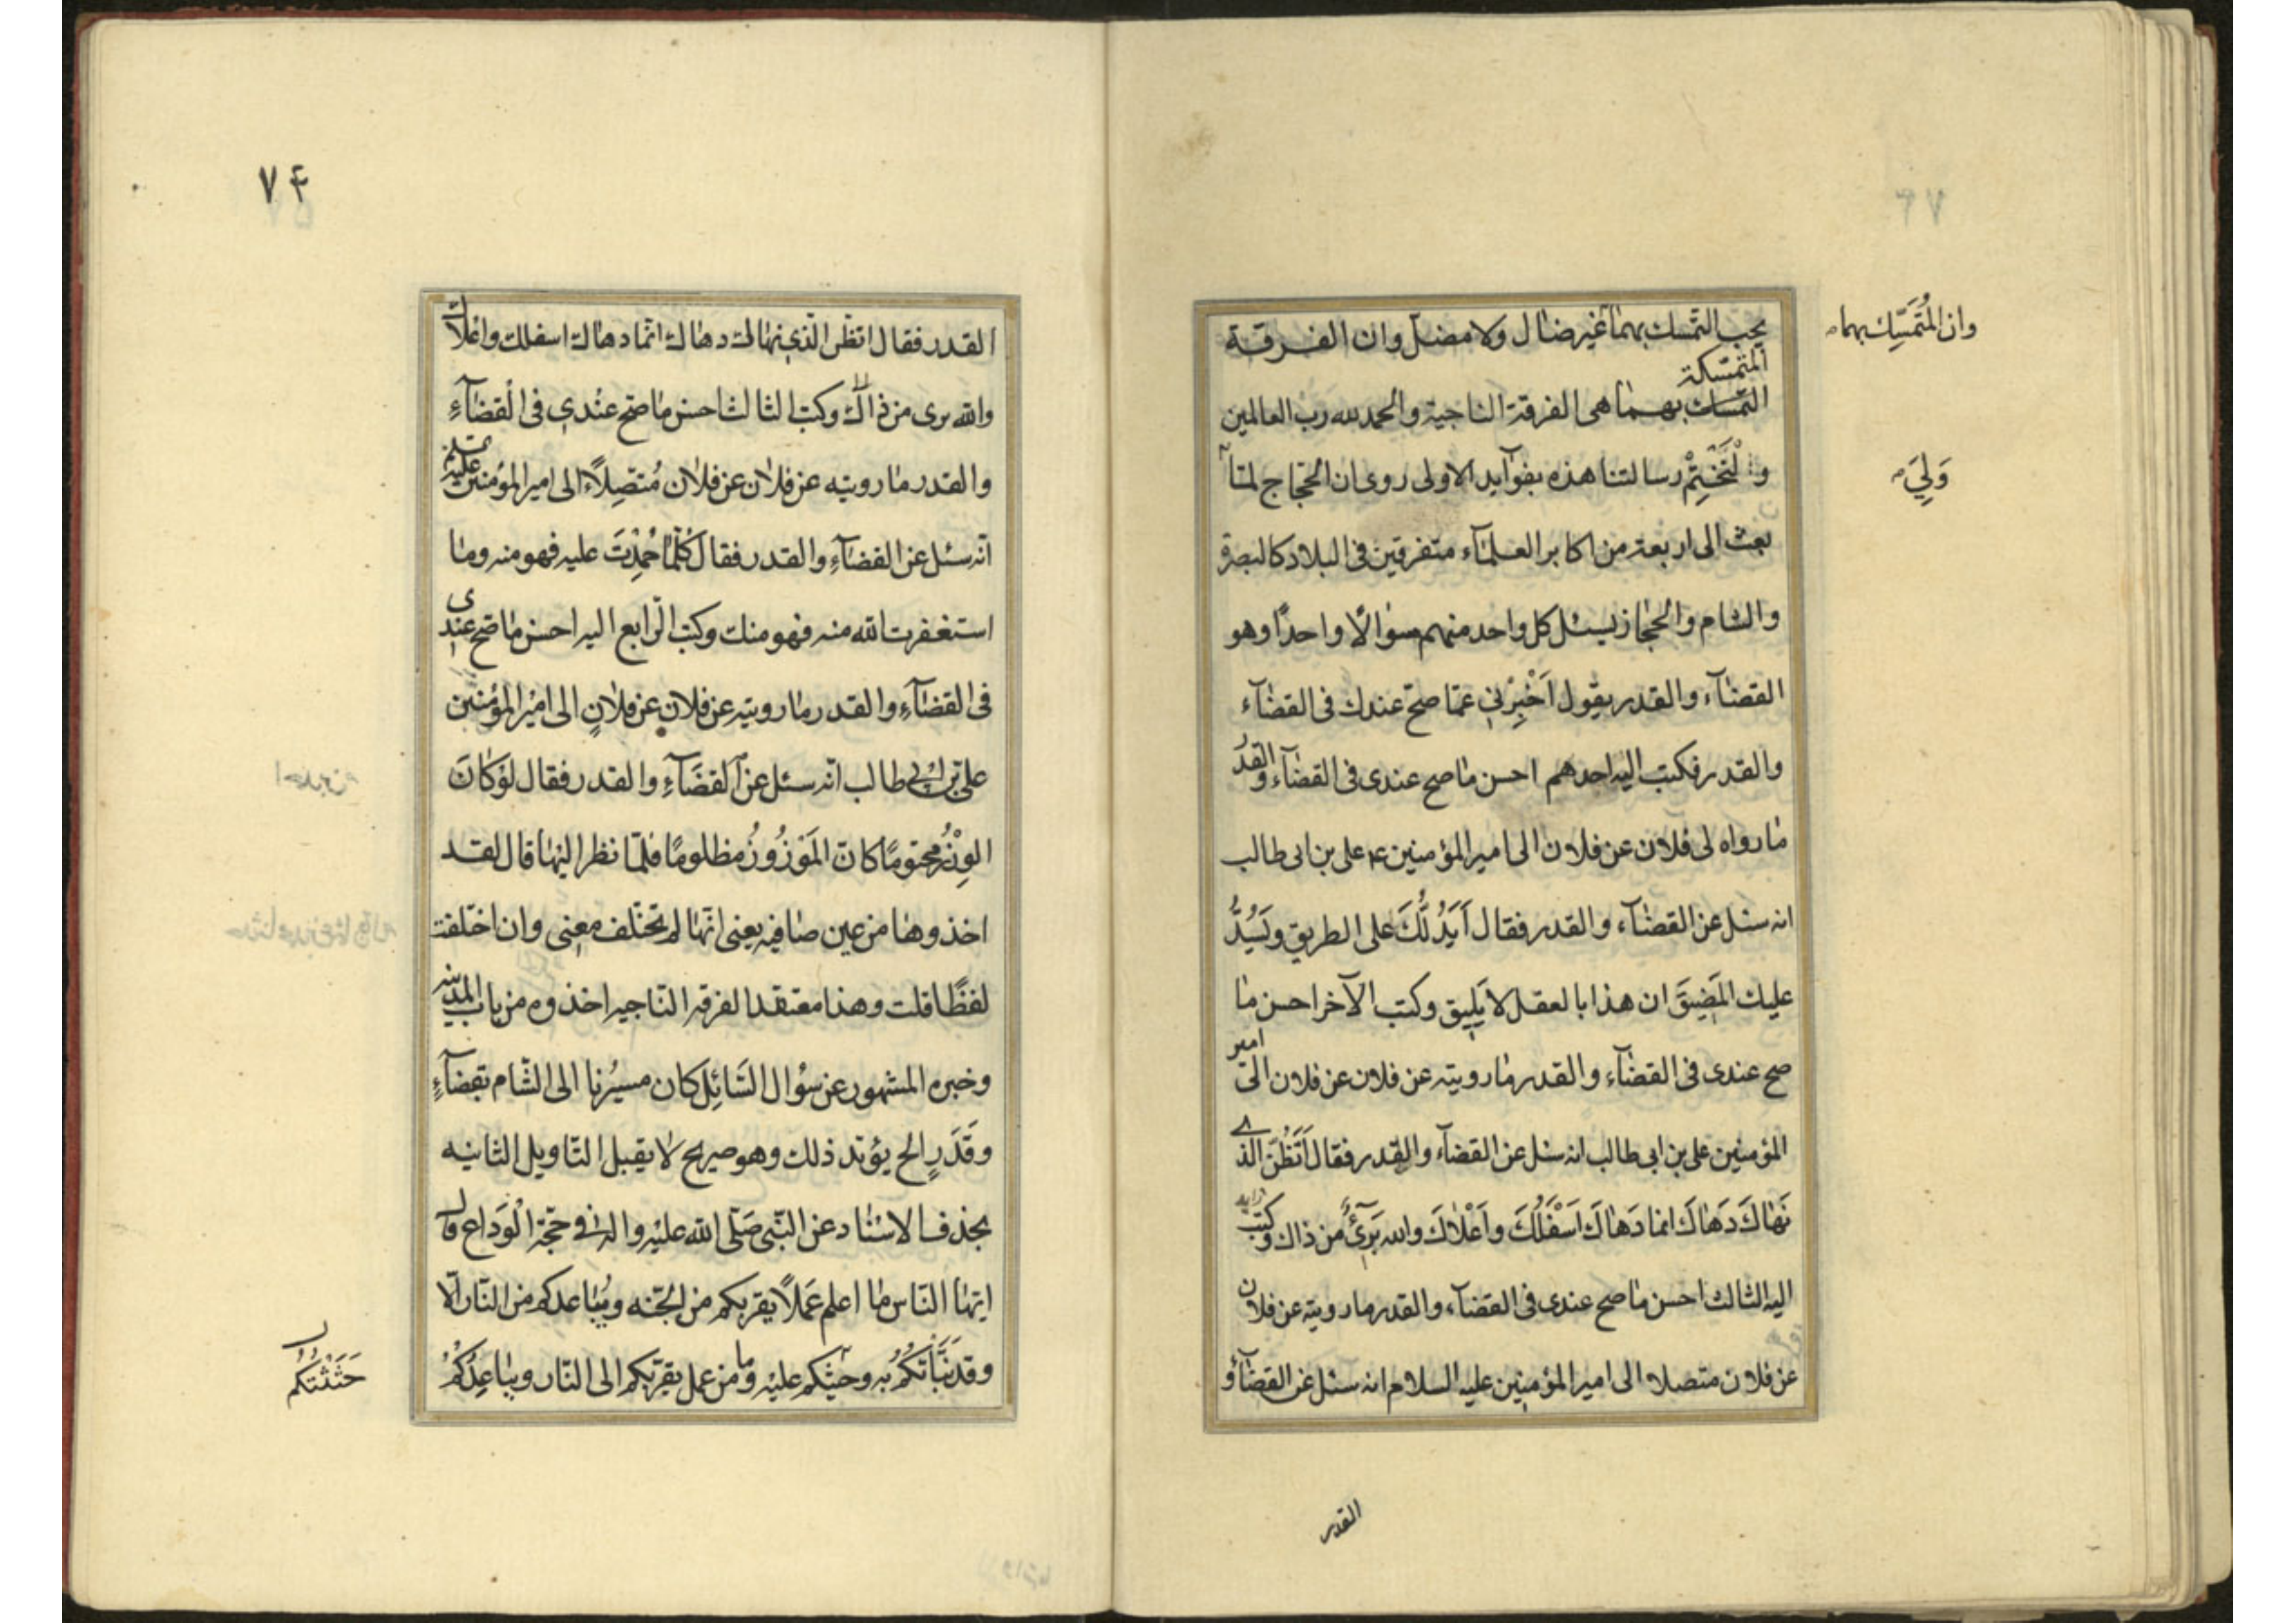 وان المُتَمَسِّك بهما
يجب التمسك بهما غير ضال ولا مضل وان الفرقة
المتمسكة
التمسك بهما هى الفرقة الناجية والحمد لله رب العالمين
وَلِيَ
وَلْنَخْتِمْ رسالتنا هذه بفوآيد الاولى روى ان الحجاج لما
بعث الى اربعة من اكابر العلمآء متفرقين فى البلاد كالبصرة
والشام والحجاز يسئل كل واحد منهم سوالًا واحدًا وهو
القضآء والقدر يقول اَخْبِرْنِي عمّا صحّ عندك فى القضآء
والقدر فكتب اليه احدهم احسن ما صح عندى فى القضآء والقدر
ما رواه لى فلان عن فلان الى امير المؤمنين ع على بن ابى طالب
انه سئل عن القضآء والقدر فقال اَيَدُلُّكَ على الطريق وَيَسُدُّ
عليك المَضِيقَ ان هذا بالعقل لا يَلِيق وكتب الآخر احسن ما
صح عندى فى القضآء والقدر ما رويته عن فلان عن فلان الى امير
المؤمنين على بن ابى طالب انه سئل عن القضآء والقدر فقال اَتَظُنّ الذى
نَهَاكَ دَهَاكَ انما دَهَاكَ اَسْفَلُكَ واَعْلَاكَ والله بَرِىءٌ من ذاك وكَتَبَ
اليه الثالث احسن ما صح عندى فى القضآء والقدر ما رويته عن فلان
عن فلان متصلا الى امير المؤمنين عليه السلام انه سئل عن القضآء و
القدر
٧٤
القدر فقال اتظن الّذى نهاك دهاك انّما دهاك اسفلك واعلاك
والله برى من ذاك وكتب الثالث احسن ما صحّ عنْدى فى الْقضآءِ
والقدر ما رويته عن فلان عن فلان مُتّصِلاً الى امير المؤمنين عليه
انّه سئل عن القضآءِ والقدر فقال كُلّما حُمِدْتَ عليه فهو منه وما
استغفرت الله منه فهو منك وكتب الرّابع اليه احسن ما صحّ عندى
فى القضآءِ والقدر ما رويته عن فلان عن فلانٍ الى اميْر المؤْمنين
على بن ابى طالب انّه سئل عن الْقضَآءِ والقدر فقال لوْ كَانَ
الوِزْرُ محتومًا كانَ المَوْزُورُ مظلومًا فلمّا نظر اليْها قال لقد
اخذوها من عين صافيه يعنى انّها لم تختلف معنى وان اختلفت
لفظًا قلت وهذا معتقد الفرقه النّاجيه اخذوه من باب المدينه
وخبره المشهور عن سؤال السَّائِل كان مسيْرُنا الى الشّام بقضآءٍ
وقَدَرٍ الخ يؤيّد ذلك وهو صريح لا يقبل التّاويل الثّانيه
بحذف الاسْناد عن النّبى صَلّى الله عليْه واله فى حجّة الْوَداع قال
ايّها النّاس ما اعلم عَملاً يقربكم من الجنّه ويُباعدكم من النّار الّا
وقد نَبَّأْتكُمْ به وحثيتكم عليْه وما من عمل يقرّبكم الى النّار ويباعِدكُمْ
حَثَثْتُكُم